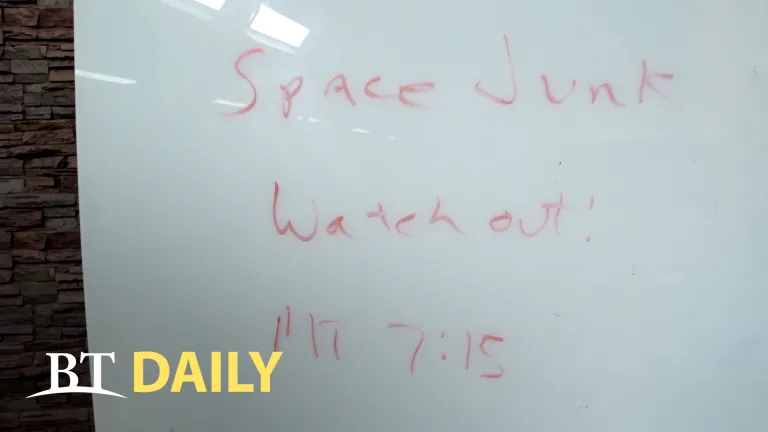 Space Junk
Watch out!
MT 7:15
BT DAILY